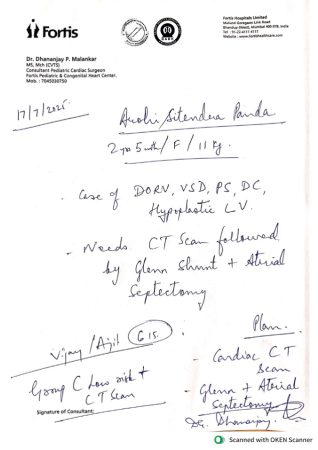 Fortis
Fortis Hospitals Limited
Mulund Goregaon Link Road
Bhandup (West), Mumbai 400 078, India
Tel : 91-22-4111 4111
Website : www.fortishealthcare.com
Dr. Dhananjay P. Malankar
MS, Mch (CVTS)
Consultant Pediatric Cardiac Surgeon
Fortis Pediatric & Congenital Heart Center.
Mob. : 7045030750
17/7/2025.
Arohi Jitendra Panda
2 yo 5 mth / F / 11 Kg.
- Case of DORV, VSD, PS, DC,
Hypoplastic LV.
- Needs CT Scan followed
by Glenn Shunt + Atrial
Septectomy
Vijay / Ajit G15.
Group C Low risk +
CT Scan
Plan.
- Cardiac CT
Scan
- Glenn + Atrial
Septectomy
Dr. Dhananjay.
Signature of Consultant:
Scanned with OKEN Scanner